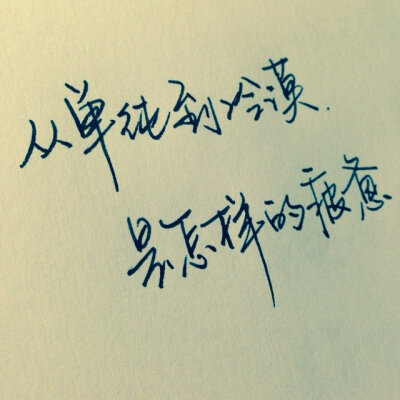 从单纯到冷漠.
是怎样的疲惫